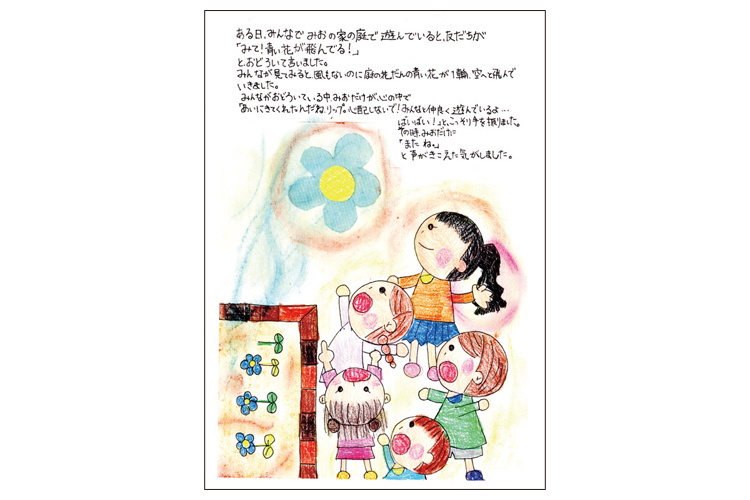 ある日、みんなで みおの家の庭で 遊んでいると、友だちが
「みて!青い花が飛んでる!」
と、おどろいて言いました。
みんなが見てみると、風もないのに庭の花だんの青い花が1輪、空へと飛んで
いきました。
みんながおどろいている中、みおだけが、心の中で
「あいにきてくれたんだね、リップ。心配しないで!みんなと仲良く遊んでいるよ…
ばいばい!」と、こっそり手を振りました。
その時、みおだけに
「またね。」
と声がきこえた気がしました。